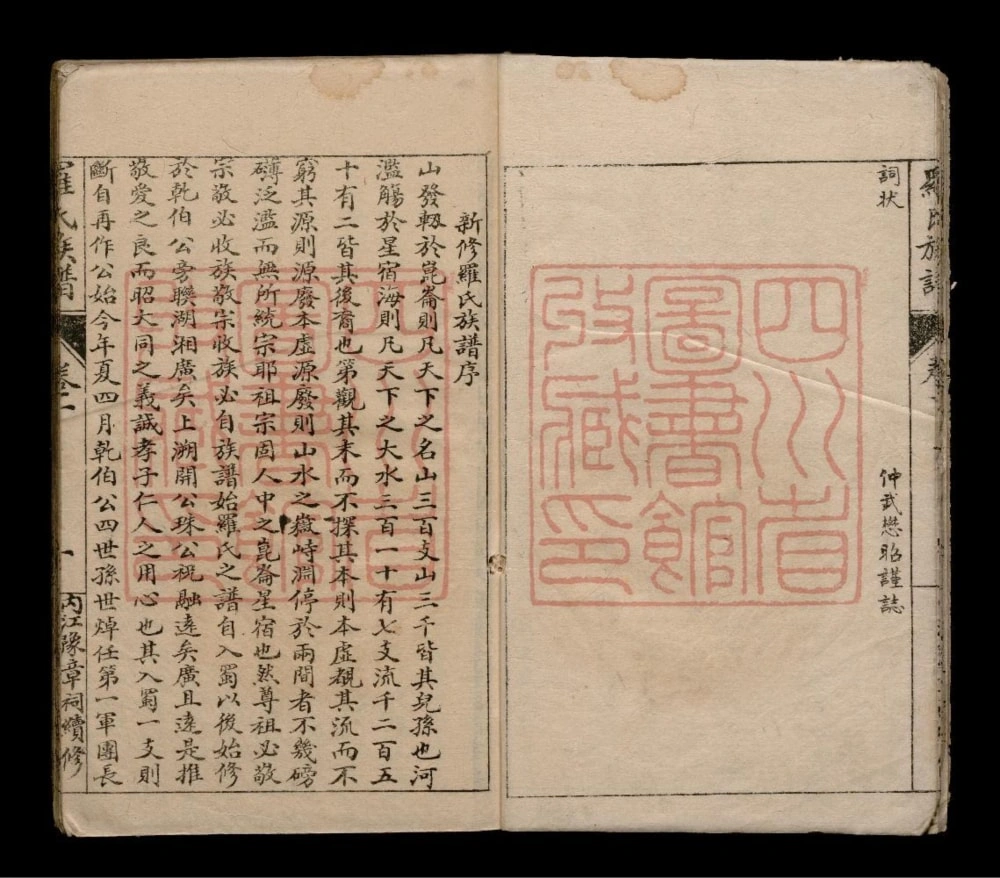 羅氏族譜 卷
詞狀
仲武懋昭謹誌
四川省
圖書館
收藏印
新修羅氏族譜序
山發軔於崑崙則凡天下之名山三百支山三千皆其兒孫也河
濫觴於星宿海則凡天下之大水三百一十有七支流千二百五
十有二皆其後裔也第觀其末而不探其本則本虛覩其流而不
窮其源則源廢本虛源廢則山水之嶽峙淵停於兩間者不幾磅
礴泛濫而無所統宗耶祖宗固人中之崑崙星宿也然尊祖必敬
宗敬必收族敬宗收族必自族譜始羅氏之譜自入蜀以後始修
於乾伯公旁聯湖湘廣矣上溯開公珠公祝融遠矣廣且遠是推
敬愛之良而昭大同之義誠孝子仁人之用心也其入蜀一支則
斷自再作公始今年夏四月乾伯公四世孫世焯任第一軍團長
羅氏族譜 卷一 一 內江豫章祠續修